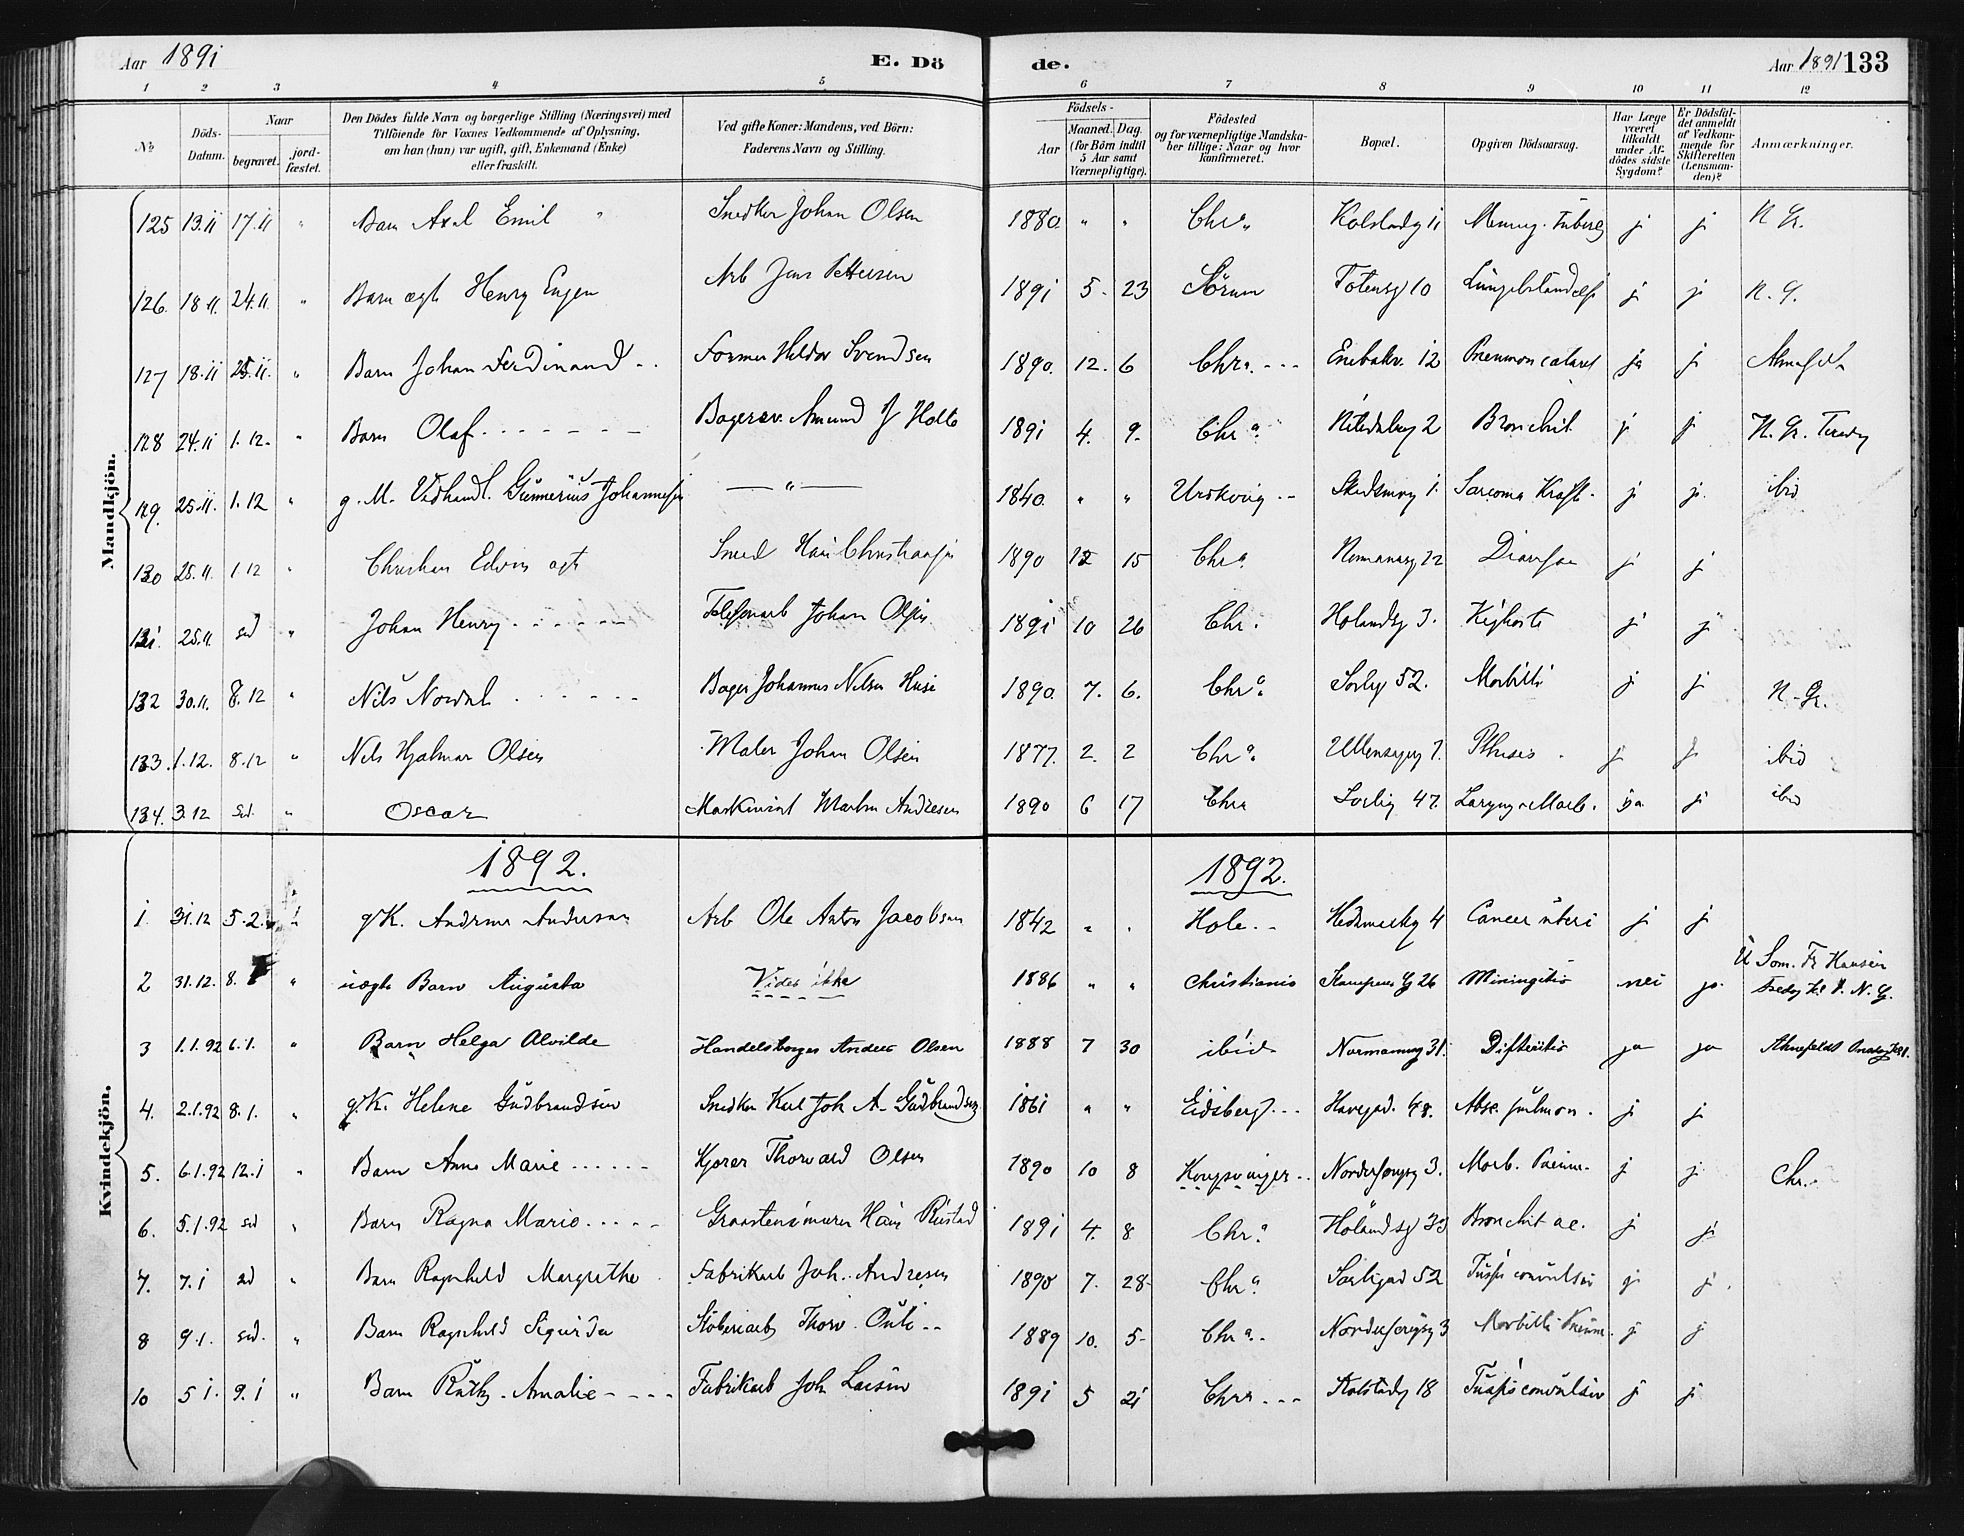 Aar 1891 E. Döde. Aar 1891 133
1 2 3 4 5 6 7 8 9 10 11 12
№
Döds-Datum.
Naar
begravet.
jord-fæstet.
Den Dödes fulde Navn og borgerlige Stilling (Næringsvei) med
Tilföiende for Voxnes Vedkommende af Oplysning,
om han (hun) var ugift, gift, Enkemand (Enke)
eller fraskilt.
Ved gifte Koner: Mandens, ved Börn:
Faderens Navn og Stilling.
Födsels-
Aar
Maaned. Dag.
(for Börn indtil
5 Aar samt
Værnepligtige).
Födested
og for værnepligtige Mandska-
ber tillige: Naar og hvor
konfirmeret.
Bopæl.
Opgiven Dödsaarsag.
Har Læge
været
tilkaldt
under Af-
dödes sidste
Sygdom?
Er Dödsfal-
det anmeldt
af Vedkom-
mende for
Skifteretten
(Lensman-
den)?
Anmærkninger.
Mandkjön.
125 13.11 17.11 " Barn Axel Emil " Snedker Johan Olsen 1880. " " Chra Kolstadg 11 j j N Gr.
126. 18 11. 24.11. " Barn ægte Henry Eugen Arb Jens Pettersen 1891 5. 23 Sörum Totensg 10 j j N. G.
127 18.11 25.11. " Barn Johan Ferdinand .. Former Svendsen 1890. 12. 6 Chra. --- Enebakv. 12 Pneumon catarrh ja j
128 24.11 1.12. " Barn Olaf. - - - - - - Amund J Holte 1891 4. 9. Chra. Nitedalsg 2 Bronchit j j N. Gr.
129. 25.11. 1.12 " g. M. Vedhandl. Gunnerius Johannesen — " — 1840. " " Urskoug -- 1. Sarcoma Kræft. j j. ibid
130 25.11. 1.12 " Christian Edvin ægte Hans Christiansen 1890 12 15 Chra. Normannsg 22 j j
131. 25.11 sd " Johan Henry. - - - - - Telefonarb Johan Olsen 1891 10 26 Chr. Hölandsg 3. Kighoste j j
132 30.11. 8.12 " Nils Nordal . - - - - - Bager Johannes Nilsen 1890. 7. 6. Chra. Sorlig 52. Morbilli j j N. Gr.
133. 1.12. 8.12 " Nils Hjalmar Olsen Maler Johan Olsen 1877. 2. 2 Chra. Ullensagerg 7. Phtisis . j j ibid
134. 3.12 sd. " Oscar Maskinist Martin Andresen 1890 6 17 Chra Sorlig 47. Laryng. Morb. ja j ibid
Kvindekjön.
1892. 1892.
1. 31.12 5.2. g.K. Andersen Arb Ole Anton Jacobsen 1842 " . Hole. -- Hedemarksg 4 Cancer uteri j j
2 31.12. 8. " uægte Barn Augusta Vides ikke 1886 " " Christiania 26 Miningitis nei ja. N. G.
3 1.1.92 6.1. " Barn Helga Alvilde Anders Olsen 1888 7 30 ibid Normannsg 31. Difteritis ja ja
4. 2.1.92 8.1. " g.K. Helene Gudbrandsen Snedker Karl Joh A. Gudbrandsen 1861 " " Eidsberg. -- 48. Absc. pulmon. j j
5. 6.1.92 12.1 " Barn Anna Marie ...... Kjörer Thorvard Olsen 1890 10 8 Kongsvinger. . 3. Morb. Pneum. j j Chr..
6. 5.1.92 sd " Barn Ragna Marie..... Graastensmurer Hans Rustad 1891 4. 8 Chra. Hölandsg 33 Bronchit ac. j j
7. 7.1 sd " Barn Ragnhild Margrethe . Fabrikarb Joh. Andresen 1890 7. 28- Chra. Sorligad 52 Tussis convulsiv j j.
8 9.1. sd. " Barn Ragnhild Sigurda Stöberiarb Thorv. -- 1889 10. 5- Chra.- 3 Morbilli Pneum. j j
10 5 1. 9.1 " Barn Ruth. Amalie - - - - Fabrikarb Joh Larsen 1891 5 21 Chra. -- Kolstadg 18 Tussis convulsiv j j